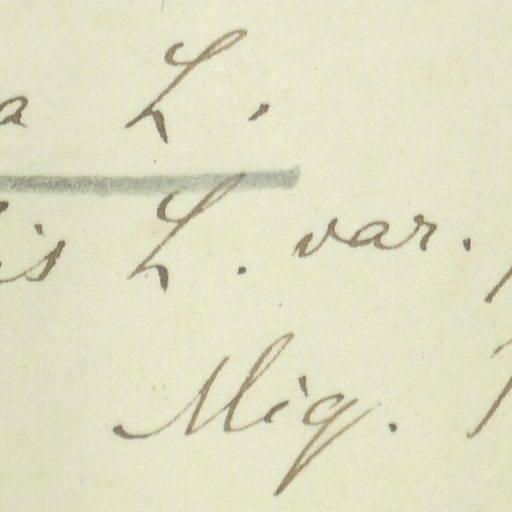 a L.
is L. var.
Miq.